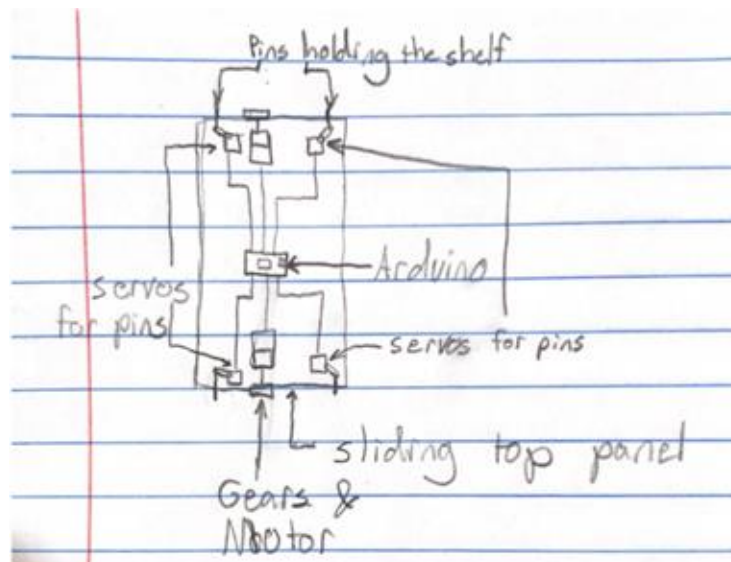 Pins holding the shelf
Arduino
servos
for pins
servos for pins
sliding top panel
Gears &
Motor